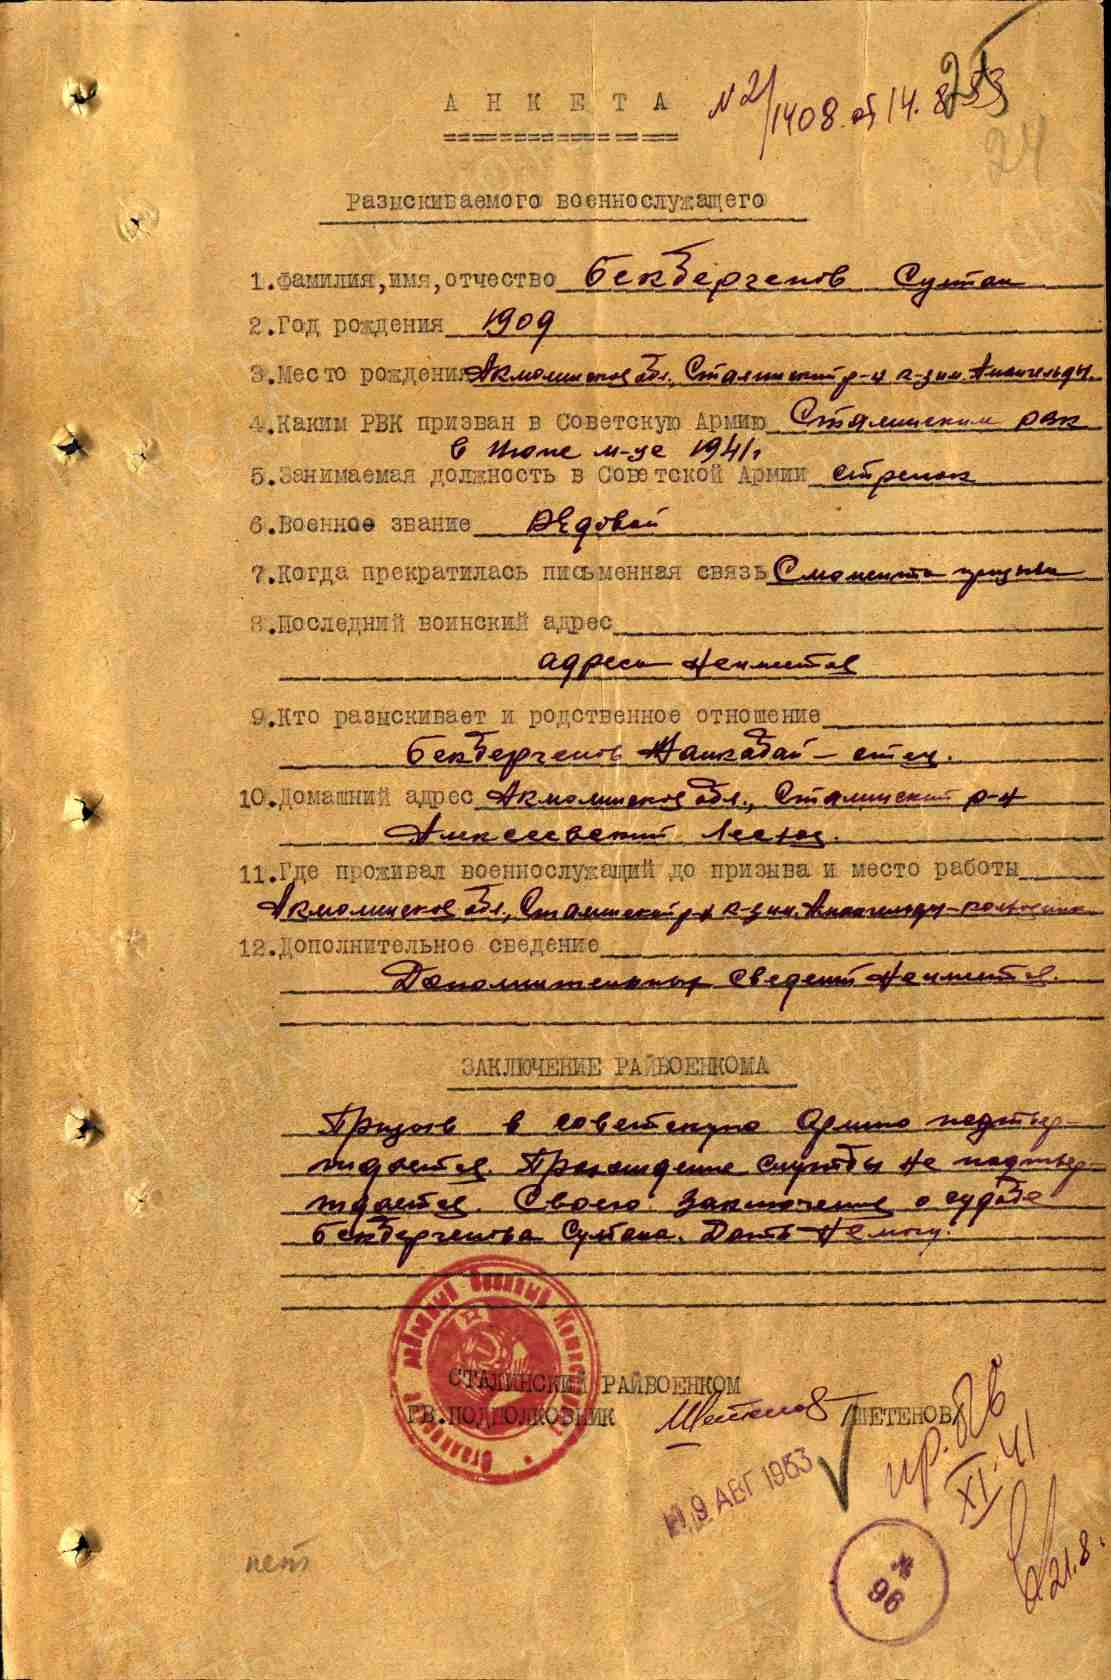 25
№ 2/1408 от 14.8.53
24
АНКЕТА
Разыскиваемого военнослужащего
1.Фамилия,имя,отчество Бекбергенов Султан
2.Год рождения 1909
3.Место рождения Акмолинская обл., Сталинский р-н к-з им. Амангельды.
4.Каким РВК призван в Советскую Армию Сталинским рвк
в июне м-це 1941г
5.Занимаемая должность в Советской Армии стрелок
6.Военное звание Рядовой
7.Когда прекратилась письменная связь С момента призыва
8.Последний воинский адрес
адреса неимется
9.Кто разыскивает и родственное отношение
Бекбергенов Жанкабай – отец.
10.Домашний адрес Акмолинская обл., Сталинский р-н
Алексеевский Лесхоз.
11.Где проживал военнослужащий до призыва и место работы
Акмолинская обл., Сталинский р-н к-з им. Амангельды - колхозник
12.Дополнительное сведение
Дополнительных сведений неимеется.
ЗАКЛЮЧЕНИЕ РАЙВОЕНКОМА
Призыв в советскую Армию подтвер-
ждается. Прохождение службы не подтвер-
ждается. Своего заключения о судьбе
Бекбергенова Султана. Дать не могу.
СТАЛИНСКИЙ РАЙВОЕНКОМ
ГВ.ПОДПОЛКОВНИК Шетенов /ШЕТЕНОВ/
19 АВГ 1953
пр. б/в
XI.41
21.8.
№
96
нет